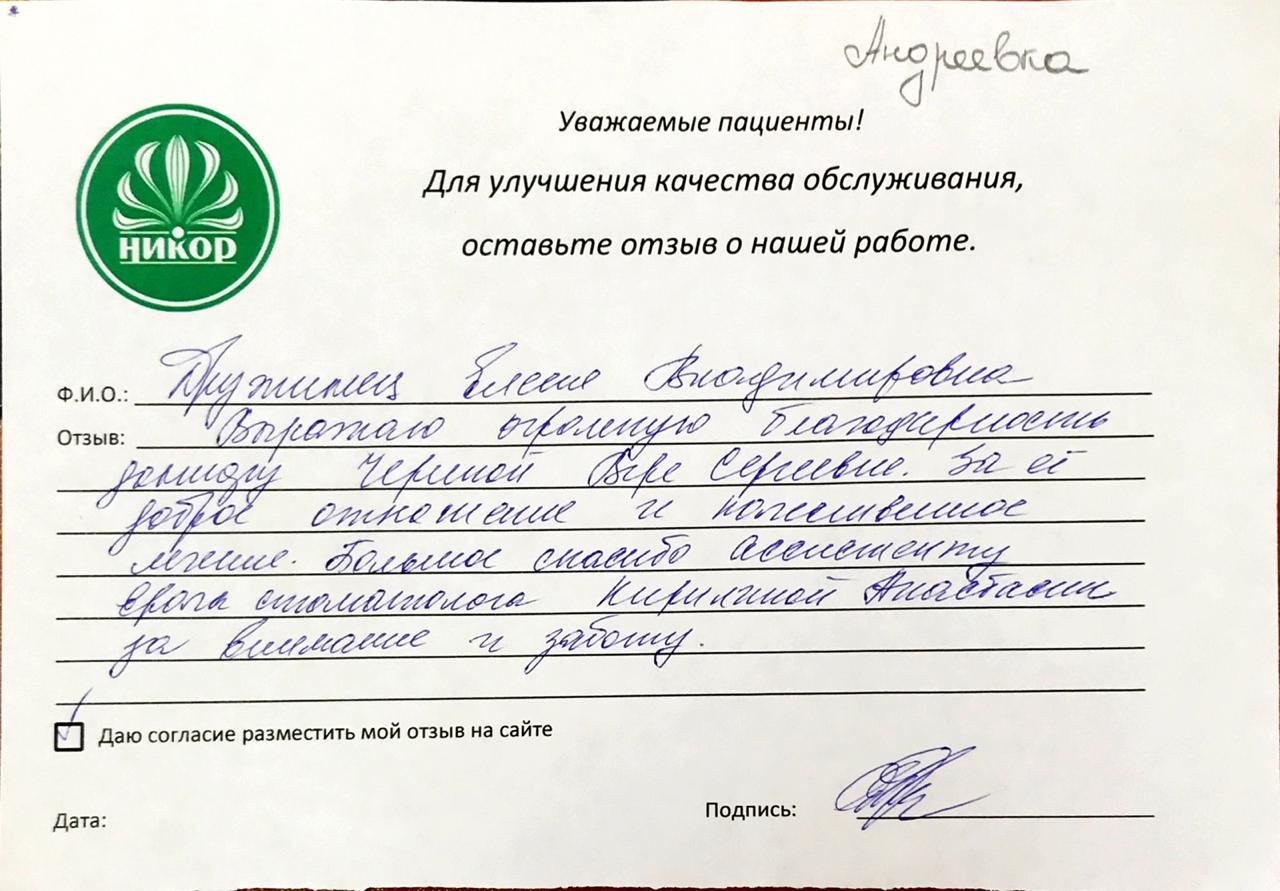 Андреевка
Уважаемые пациенты!
Для улучшения качества обслуживания,
оставьте отзыв о нашей работе.
НИКОР
Ф.И.О.: Дружинец Елене Владимировна
Отзыв: Выражаю огромную благодарность
доктору Черной Вере Сергеевне. За её
доброе отношение и качественное
лечение. Большое спасибо ассистенту
врача стоматолога Кирилиной Анастасии
за внимание и заботу.
Даю согласие разместить мой отзыв на сайте
Подпись:
Дата: